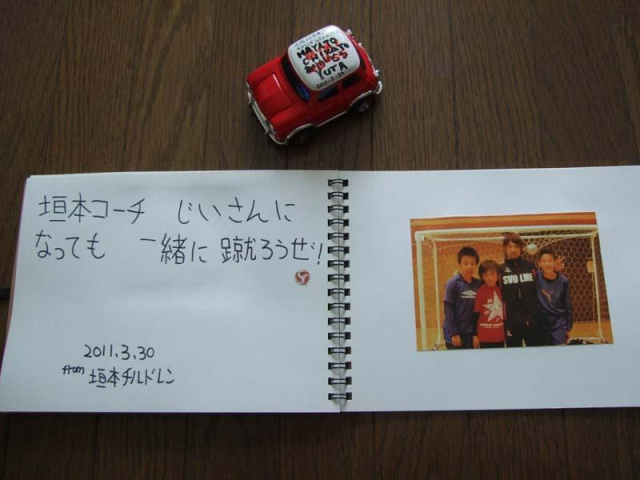 HAYATO
CHIKATO
YUTA
2011.3.30
垣本コーチ じいさんに
なっても 一緒に 蹴ろうぜ!
2011.3.30
from 垣本チルドレン
SVOLME